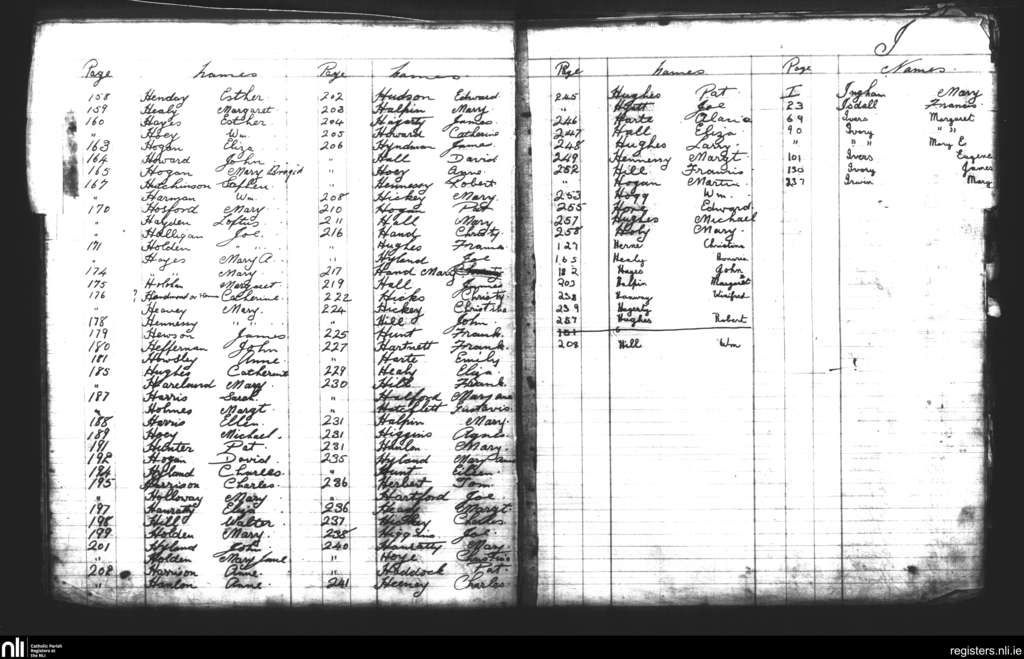 Page Names
158 Henday Esther
159 Healy Margaret
160 Hayes Esther
" Hoey Wm
163 Hogan Eliza
164 Howard John
165 Hogan Mary Brigid
167 Hutchinson Stephen
" Harman Wm
170 Hosford Mary
" Hayden Loftus
" Halligan Joe
171 Holden " "
" Hayes Mary A.
174 " " Mary
175 Margaret
176 ? Catherine
" Heavey Mary
178 Hennessy " "
179 Hewson James
180 Heffernan John
181 Howsley Anne
185 Hughes Catherine
" Mary
187 Harris Sarah
" Holmes Margt
188 Harris Ellen
189 Hoey Michael
191 Hunter Pat
192 Hogan David
194 Hyland Charles
195 Harrison Charles
" Holloway Mary
197 Hanratty Eliza
198 Hill Walter
199 Holden Mary
201 Hyland John
" Holden Mary Jane
202 Harrison Anne
" Hanlon Anne
Page Names
202 Hudson Edward
203 Halpin Mary
204 Hagerty James
205 Howard Catherine
206 Hyndman James
" Hall David
" Hoey Agne
" Hennessy Robert
208 Hickey Mary
210 Hogan Pat
211 Hall Mary
216 Hand Christy
" Hughes Frances
" Hyland Joe
217 Hand Mary
219 Hall James
222 Hicks Christy
224 Hickey Christina
" Hill John
225 Hunt Frank
227 Hartnett Frank
" Harte Emily
229 Healy Eliza
230 Hill Frank
" Halford Mary ane
" Gustavis
231 Halpin Mary
231 Higgins Agnes
231 Hanlon Mary
235 Hyland Mary an
" Hunt Ellen
236 Herbert Tom
" Hartford Joe
236 Heady Margt
237 Hickey Charles
238 Higgins Joe
240 Hanratty Mary
" Hoye
" Haddock Pat
241 Heeney Charles
Page Names
245 Hughes Pat
" Joe
246 Harte Maria
247 Hall Eliza
248 Hughes Larry
249 Hennessy Margt
252 Hill Francis
" Hogan Martin
253 Hogg Wm
255 Edward
257 Hughes Michael
258 Mary
127 Herne Christina
165 Healy Honoria
182 Hayes John
203 Halpin Margaret
238 Hanway Winifred
239 Hagerty
257 Hughes Robert
208 Hill Wm
I
Page Names
I Ingham Mary
23 Isdall Francis
69 Ivers Margaret
90 Ivory " "
" " " Mary E
101 Ivers Eugene
130 Ivory James
237 Irwin Mary
nli
Catholic Parish
Registers at
the NLI
registers.nli.ie